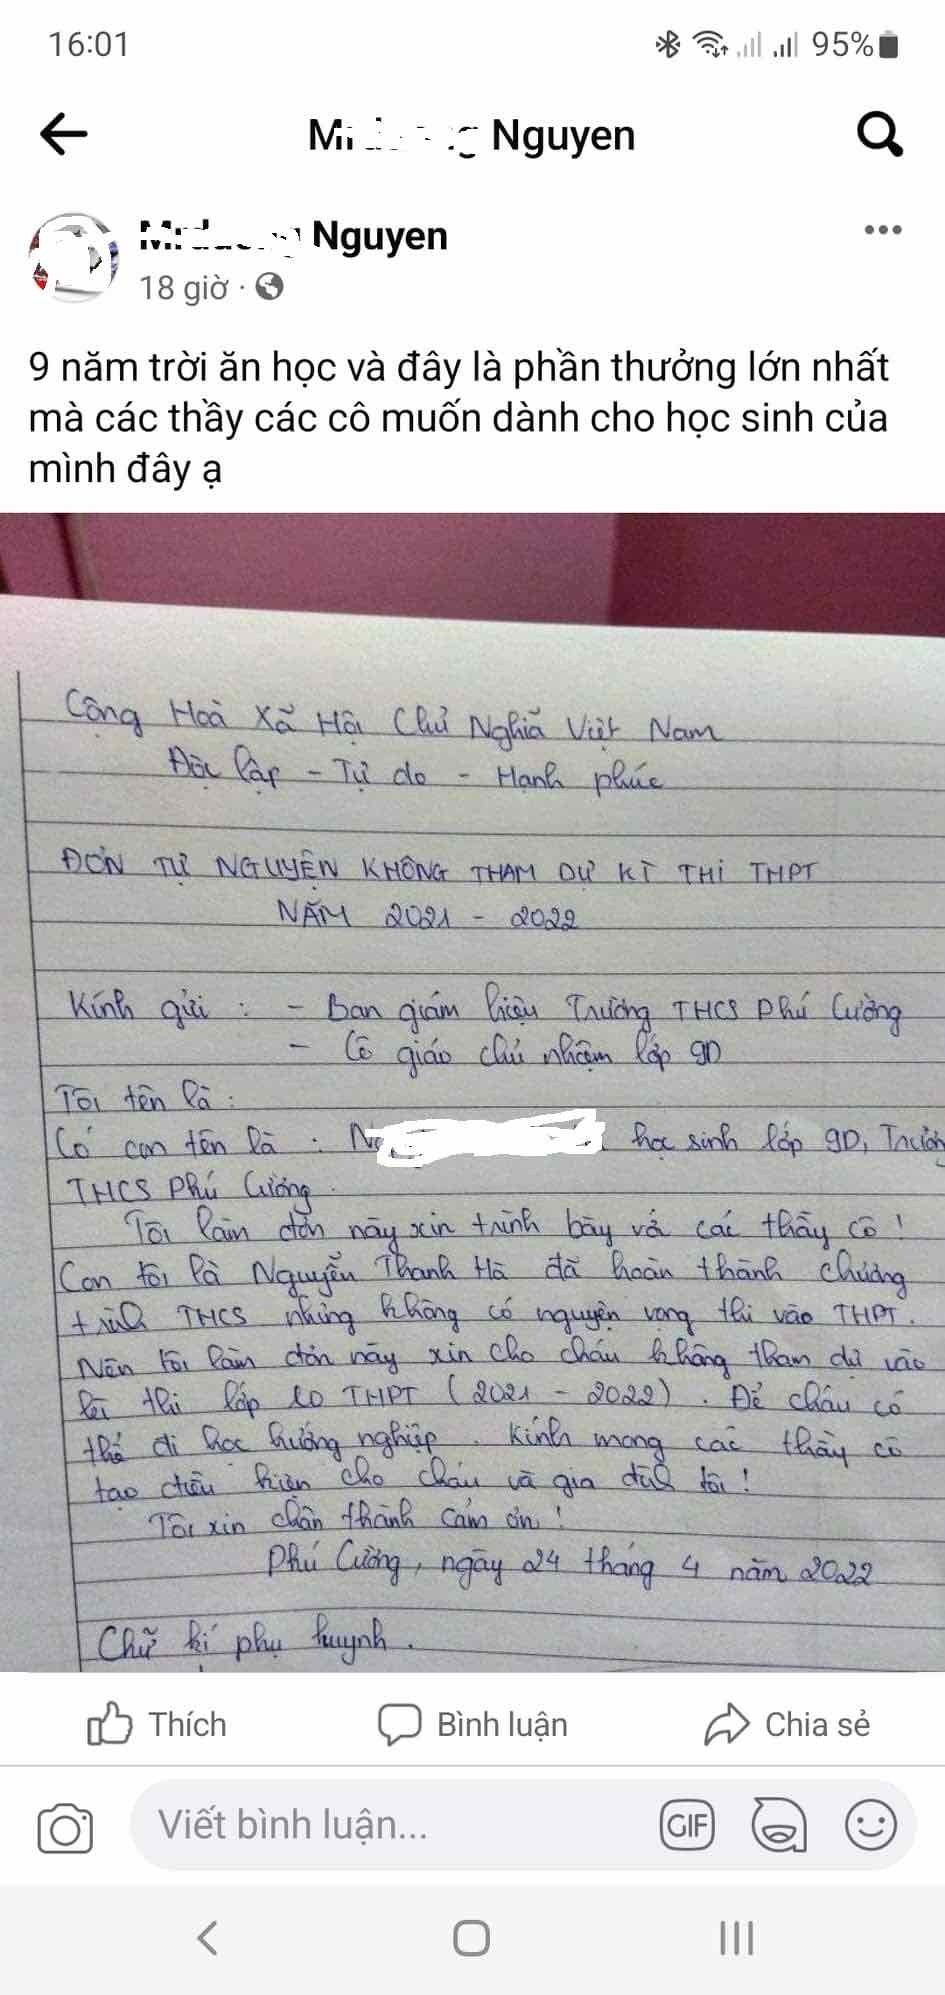 16:01 95%
Nguyen
Nguyen
18 giờ ·
9 năm trời ăn học và đây là phần thưởng lớn nhất
mà các thầy các cô muốn dành cho học sinh của
mình đây ạ
Cộng Hoà Xã Hội Chủ Nghĩã Việt Nam
Độc lập - Tự do - Hạnh phúc
ĐƠN TỰ NGUYỆN KHÔNG THAM DỰ KÌ THI THPT
NĂM 2021 - 2022
Kính gửi : - Ban giám hiệu Trường THCS Phú Cường
- Cô giáo chủ nhiệm lớp 9D
Tôi tên là :
Có con tên là : học sinh lớp 9D, Trường
THCS Phú Cường.
Tôi làm đơn này xin trình bày với các thầy cô !
Con tôi là Nguyễn Thanh Hà đã hoàn thành chương
trình THCS nhưng không có nguyện vọng thi vào THPT.
Nên tôi làm đơn này xin cho cháu không tham dự vào
kì thi lớp 10 THPT (2021 - 2022). Để cháu có
thể đi học hướng nghiệp. Kính mong các thầy cô
tạo điều kiện cho cháu và gia đình tôi !
Tôi xin chân thành cảm ơn !
Phú Cường, ngày 24 tháng 4 năm 2022
Chữ kí phụ huynh.
Thích Bình luận Chia sẻ
Viết bình luận... GIF